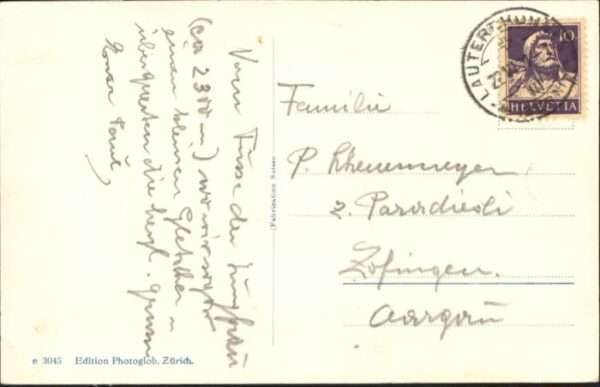 Vom Fusse der Jungfrau
(ca 2300 m) wo wir sogar
einen kleinen Gletscher
überquerten die herzl. Grüsse
Euer Paul
Familie
P.
z. Paradiesli
Zofingen.
Aargau
LAUTERBRUNNEN
10
HELVETIA
e 3045 Edition Photoglob, Zürich.